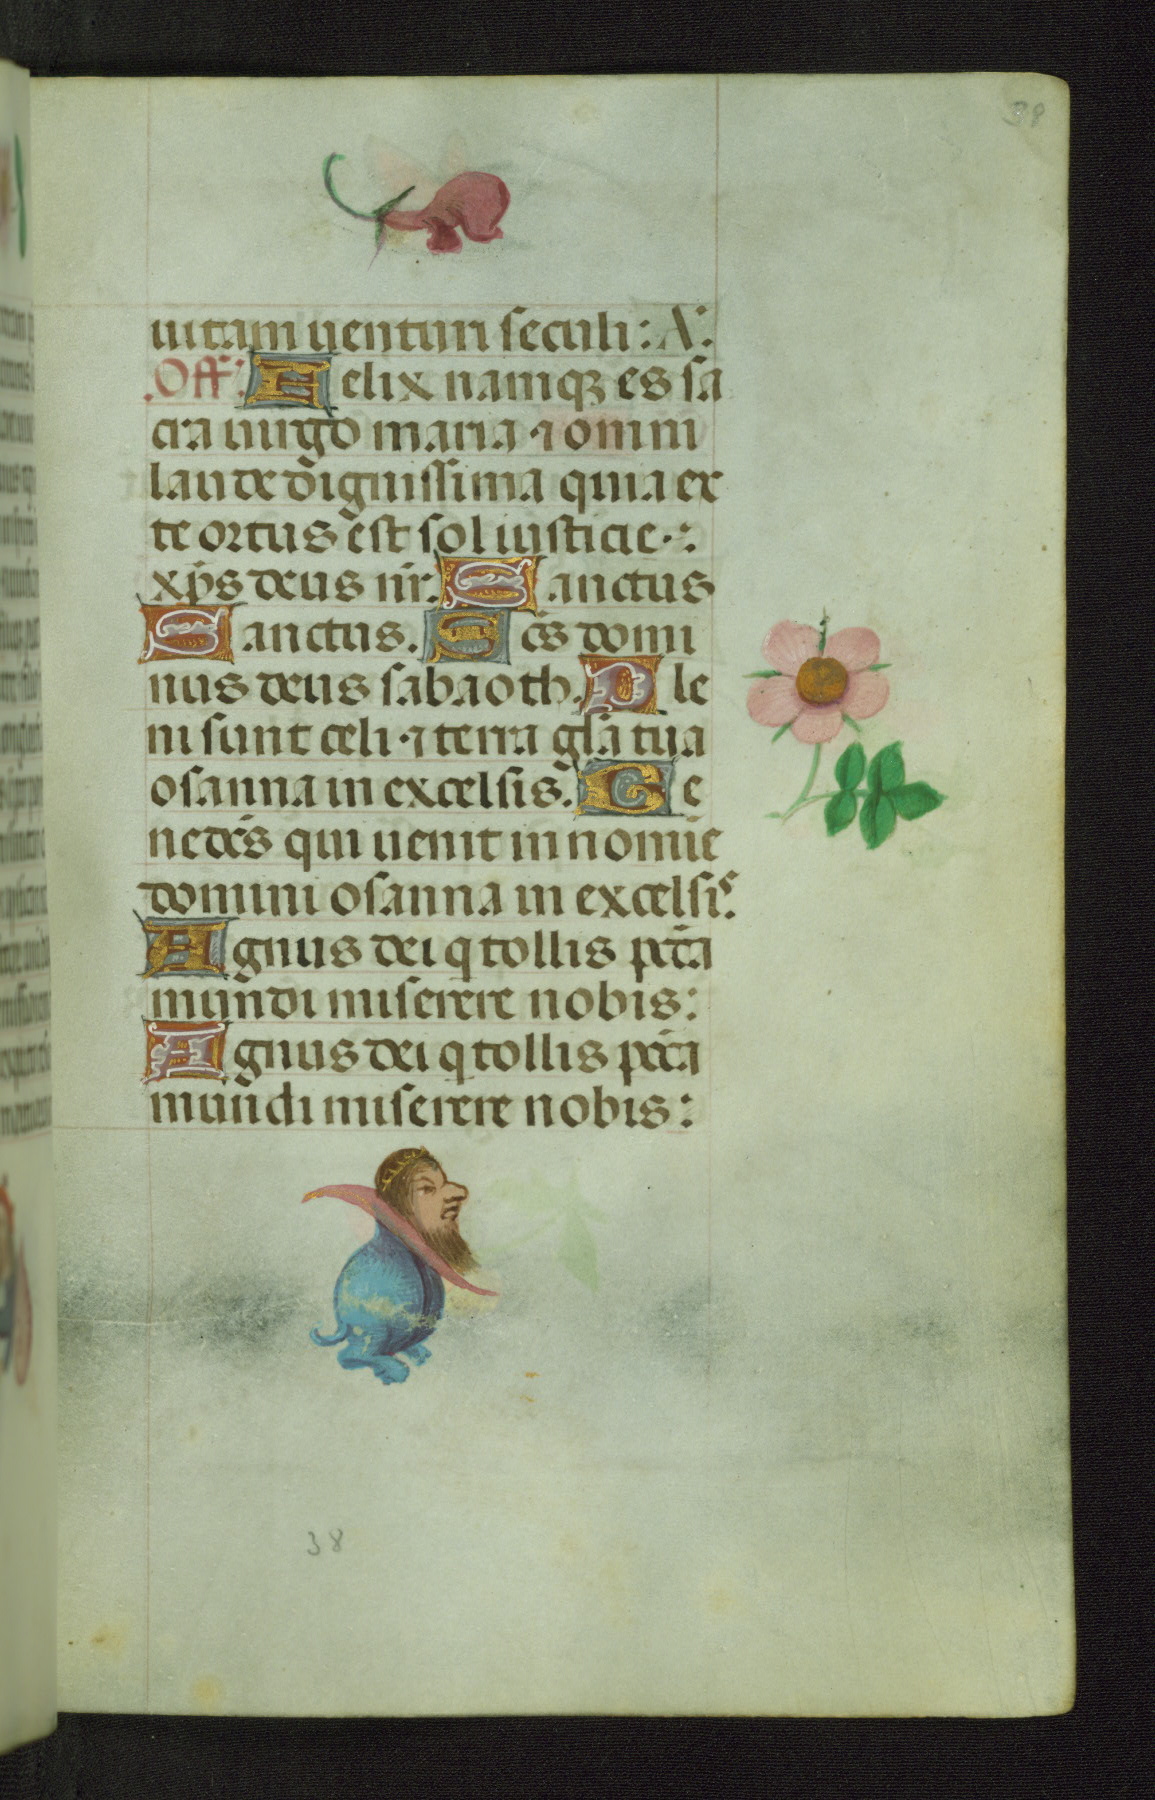 38
uitam uenturi seculi: A:
Off: Felix namqꝫ es sa
cra uirgo maria ⁊ omni
laude dignissima quia ex
te ortus est sol iusticie
xp̄s deus nr̄. Sanctus
Sanctus. Sc̄s domi
nus deus sabaoth. Ple
ni sunt celi ⁊ terra gl̄a tua
osanna in excelsis. Be
nedc̄s qui uenit in nomīe
domini osanna in excelsis.
Agnus dei q tollis pctā
mundi miserere nobis:
Agnus dei q tollis pctā
mundi miserere nobis:
38